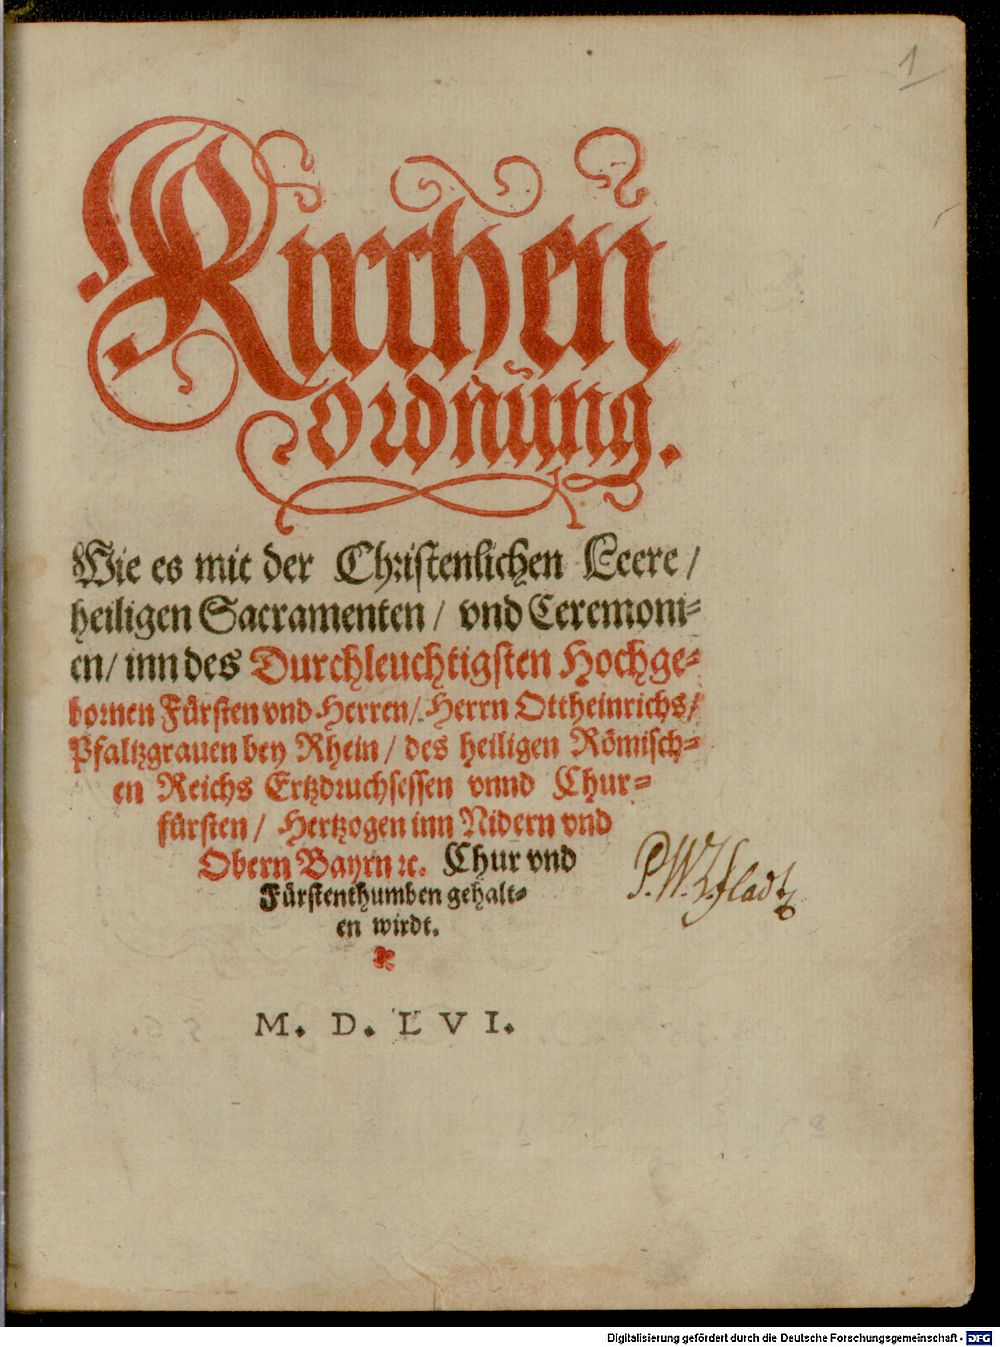 1
Kirchen
ordnung.
Wie es mit der Christenlichen Leere /
heiligen Sacramenten / vnd Ceremoni⸗
en / inn des Durchleuchtigsten Hochge⸗
bornen Fürsten vnd Herren / Herrn Ottheinrichs /
Pfaltzgrauen bey Rhein / des heiligen Römisch⸗
en Reichs Ertzdruchsessen vnnd Chur⸗
fürsten / Hertzogen inn Nidern vnd
Obern Bayrn ꝛc. Chur vnd
Fürstenthumben gehalt⸗
en wirdt.
M. D. L V I.
Digitalisierung gefördert durch die Deutsche Forschungsgemeinschaft - DFG